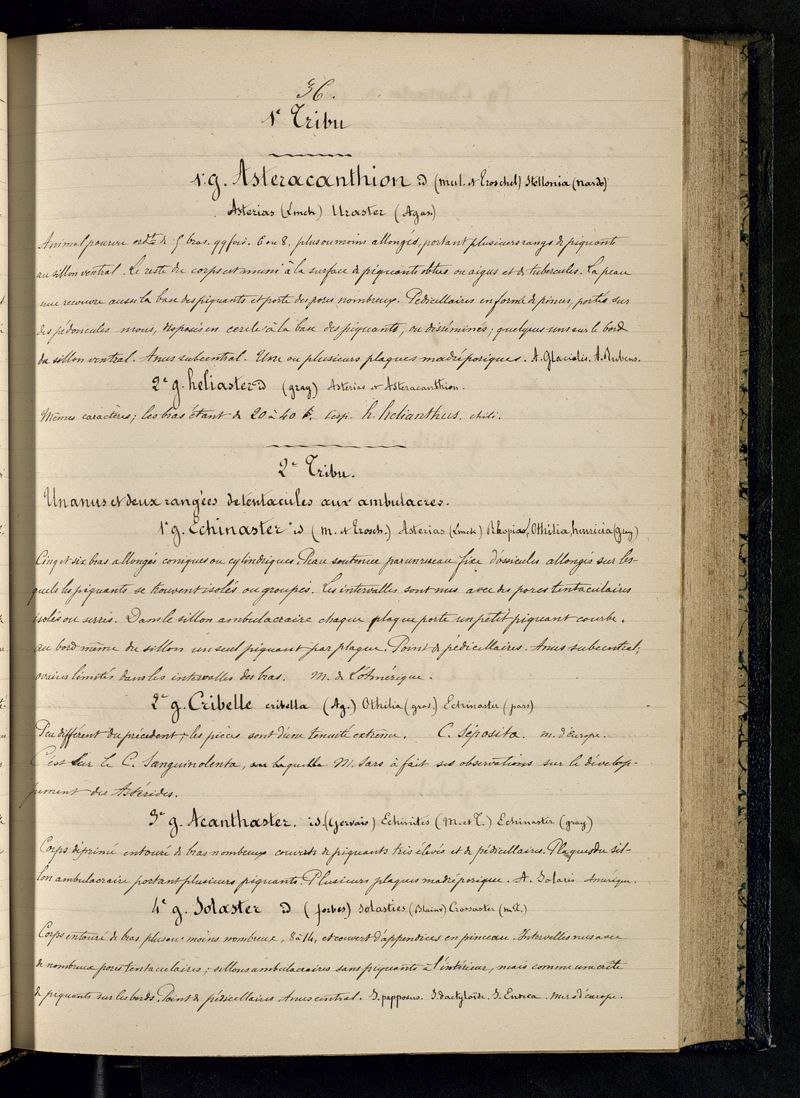 36.
1e Tribu
1r g. Asteracanthion id (mul. et Troschel) Stellonia (Nardo)
Asterias (Lmck) Uraster (Agas)
Animal pourvu ordt de 5 bras. qqfois. 6 ou 8, plus ou moins allongés, portant plusieurs rangs de piquants
au sillon ventral. Le reste du corps est muni à la surface de piquants obtus ou aigus et de tubercules. La peau
nue recouvre aussi la base des piquants et porte des pores nombreux. Pédicellaires en forme de pinces, portés sur
des pédoncules mous, disposés en cercle à la base des piquants, ou disséminés; quelques uns sur le bord
du sillon ventral. Anus subcentral. Une ou plusieurs plaques madréporiques. A. Glacialis. A. Rubens.
2e g. heliaster id (gray) Asterias et Asteracanthion.
Mêmes caractères; les bras étant de 20 à 40 1 esp. h. helianthus. chili.
2e Tribu.
Un anus et deux rangées de tentacules aux ambulacres.
1r g. Echinaster id (m. et Trosch.) Asterias (Lmck) Rhopia, Othilia, henricia (gray)
Cinq et six bras allongés coniques ou cylindriques. Peau soutenue par un réseau fixe d'ossicules allongés sur les-
quels les piquants se trouvent isolés ou groupés. Les intervalles sont nus avec des pores tentaculaires
isolés ou serrés. Dans le sillon ambulacraire chaque plaque porte un petit piquant courbe.
au bord même du sillon un seul piquant par plaque. Point de pédicellaires. Anus subcentral;
ovaires limités dans les intervalles des bras. M. de L'Amérique.
2e g. Cribelle cribella (Ag.) Othilia (gray) Echinaster (pars)
Peu différent du précédent; les pièces sont d'une tenuité extrême. C. Séposita. m. d'europe.
C'est sur le C. Sanguinolenta, sur laquelle M. Sars à fait ses observations sur le dévelop-
pement des Astérides.
3e g. Acanthaster. id (Gervais) Echinites (M. et T.) Echinaster (gray)
Corps déprimé entouré de bras nombreux couverts de piquants très élevés et de pédicellaires. Plaques du sil-
lon ambulacraire portant plusieurs piquants. Plusieurs plaques madréporique. A. Solaris Amérique.
4e g. Solaster id (forbes) Solasties (Blainv) Crossaster (m. T.)
Corps entouré de bras plus ou moins nombreux, 8 à 14, et couvert d'appendices en pinceau. Intervalles nus avec
de nombreux pores tentaculaires; sillons ambulacraires sans piquants à l'intérieur, mais comme une crête
de piquants sur les bords. Point de pédicellaires Anus central. S. papposus. S. dactyloïde. S. Endeca. Mers d'europe.